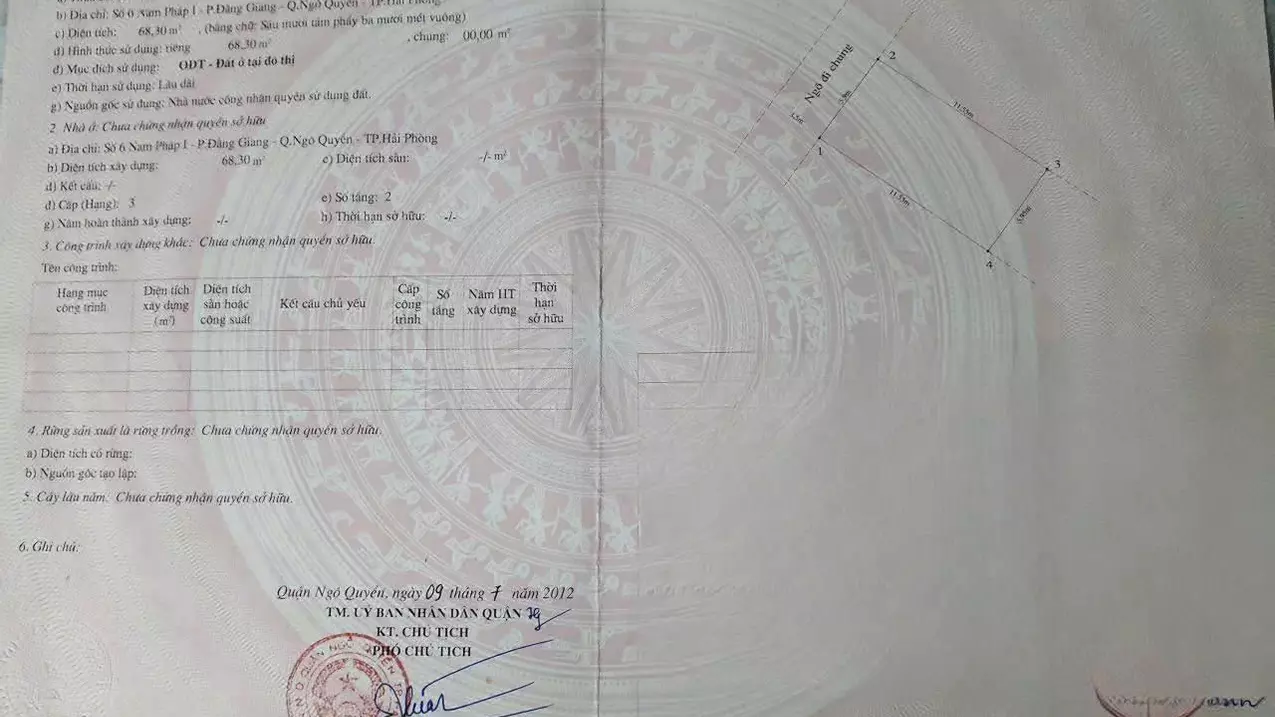 b) Địa chỉ: Số 6 Nam Pháp I - P.Đằng Giang - Q.Ngô Quyền - TP.Hải Phòng
c) Diện tích: 68,30 m², (bằng chữ: Sáu mươi tám phẩy ba mươi mét vuông)
d) Hình thức sử dụng: riêng 68,30 m², chung: 00,00 m²
đ) Mục đích sử dụng: ODT - Đất ở tại đô thị
e) Thời hạn sử dụng: Lâu dài
g) Nguồn gốc sử dụng: Nhà nước công nhận quyền sử dụng đất.
2. Nhà ở: Chưa chứng nhận quyền sở hữu
a) Địa chỉ: Số 6 Nam Pháp I - P.Đằng Giang - Q.Ngô Quyền - TP.Hải Phòng
b) Diện tích xây dựng: 68,30 m² c) Diện tích sàn: -/- m²
d) Kết cấu: -/-
đ) Cấp (Hạng): 3 e) Số tầng: 2
g) Năm hoàn thành xây dựng: -/- h) Thời hạn sở hữu: -/-
3. Công trình xây dựng khác: Chưa chứng nhận quyền sở hữu.
Tên công trình:
Hạng mục công trình
Diện tích xây dựng (m²)
Diện tích sàn hoặc công suất
Kết cấu chủ yếu
Cấp công trình
Số tầng
Năm HT xây dựng
Thời hạn sở hữu
4. Rừng sản xuất là rừng trồng: Chưa chứng nhận quyền sở hữu.
a) Diện tích có rừng:
b) Nguồn gốc tạo lập:
5. Cây lâu năm: Chưa chứng nhận quyền sở hữu.
6. Ghi chú:
Quận Ngô Quyền, ngày 09 tháng 7 năm 2012
TM. UỶ BAN NHÂN DÂN QUẬN
KT. CHỦ TỊCH
PHÓ CHỦ TỊCH
Ngõ đi chung
2
1,5m
1
11,55m
3
11,55m
4